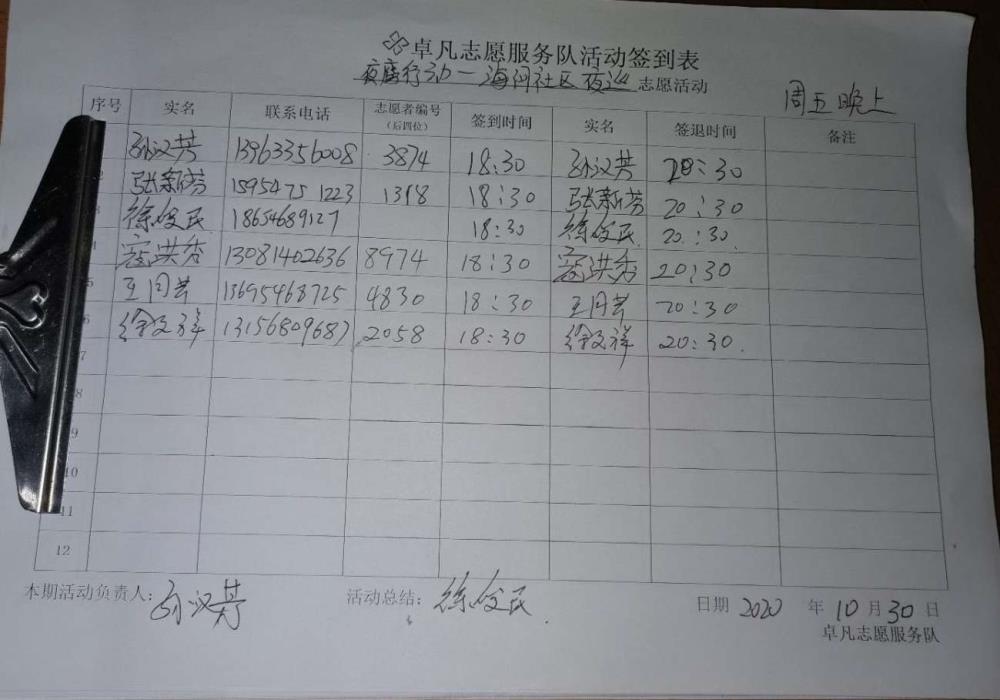 卓凡志愿服务队活动签到表
夜鹰行动一海河社区夜巡 志愿活动
周五晚上
序号 实名 联系电话 志愿者编号(后四位) 签到时间 实名 签退时间 备注
孙汉芳 13963356008 3874 18:30 孙汉芳 20:30
张新芳 15954751223 1318 18:30 张新芳 20:30
徐俊民 18654689127 18:30 徐俊民 20:30
4 寇洪秀 13081402636 8974 18:30 寇洪秀 20:30
5 王同芸 13695468725 4830 18:30 王同芸 20:30
6 徐文祥 13156809687 2058 18:30 徐文祥 20:30.
7
8
9
10
11
12
本期活动负责人: 孙汉芳 活动总结: 徐俊民. 日期 2020 年 10 月 30 日
卓凡志愿服务队